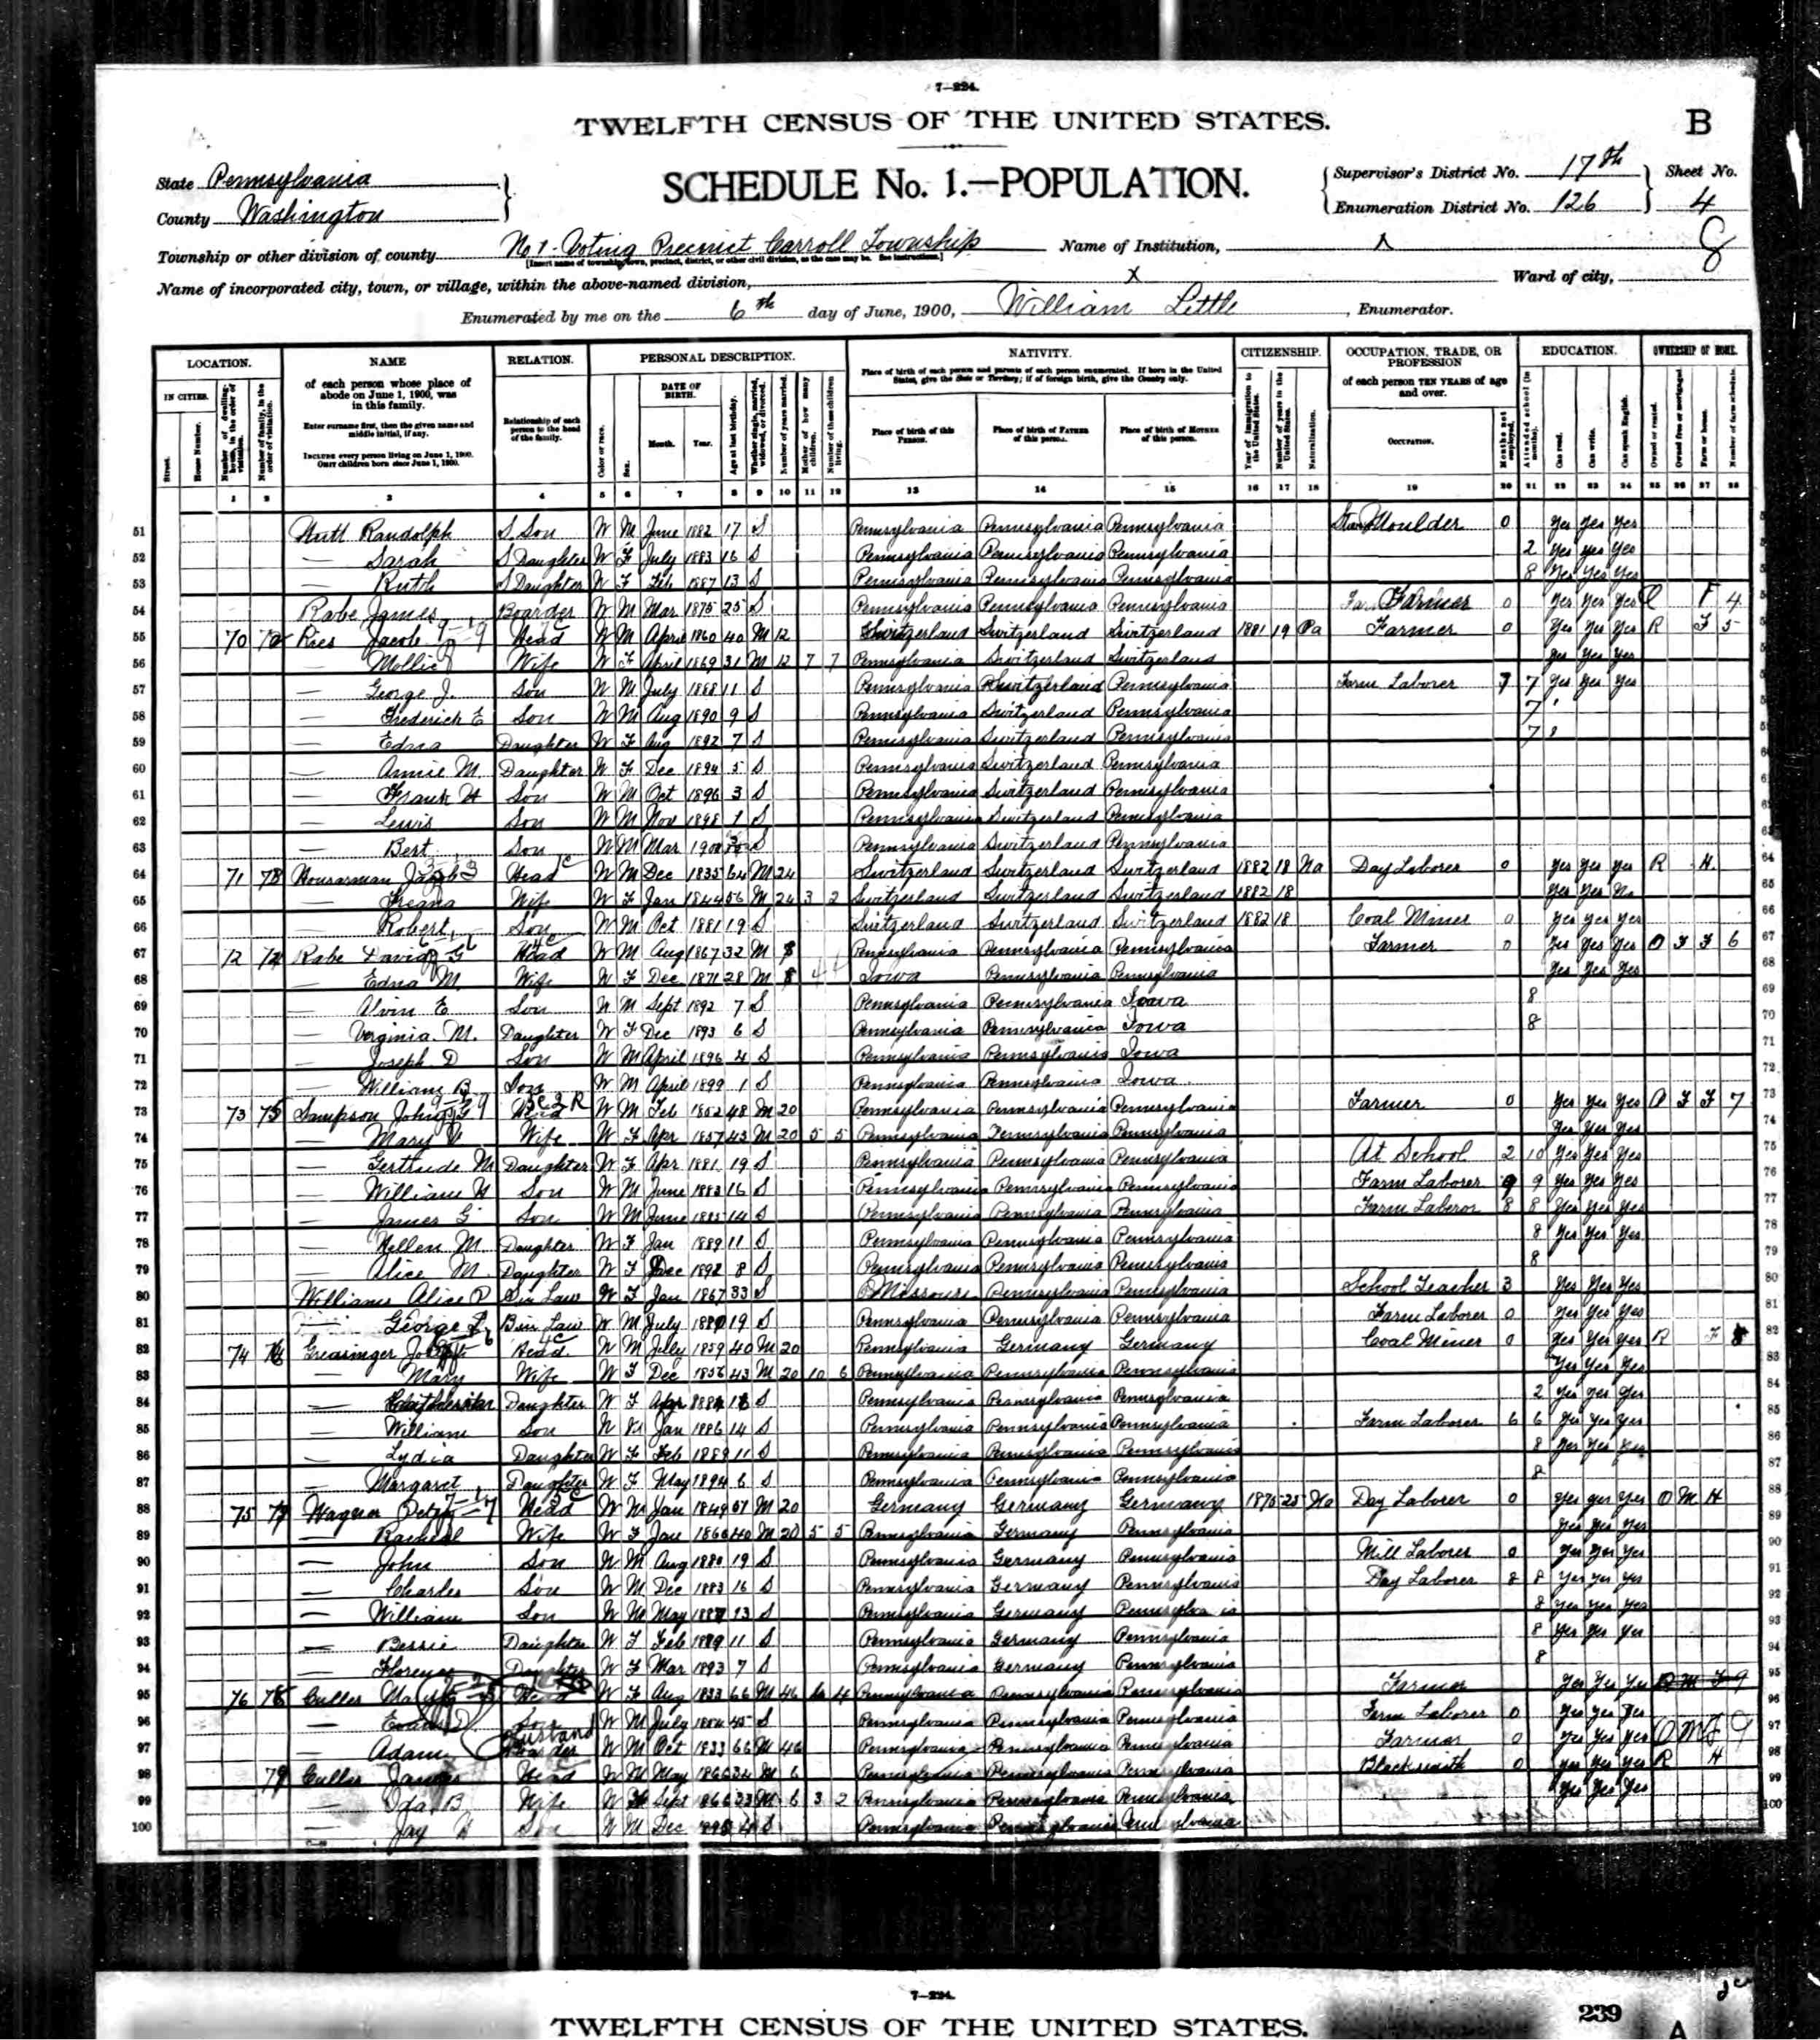 7—224.
TWELFTH CENSUS OF THE UNITED STATES.
B
State Pennsylvania
County Washington
SCHEDULE No. 1.—POPULATION.
Supervisor's District No. 17th
Enumeration District No. 126
Sheet No.
4
8
Township or other division of county No 1 - Voting Precinct Carroll Township
[Insert name of township, town, precinct, district, or other civil division, as the case may be. See instructions.]
Name of Institution, X
Name of incorporated city, town, or village, within the above-named division, X
Ward of city,
Enumerated by me on the 6th day of June, 1900, William Little, Enumerator.
LOCATION. NAME RELATION. PERSONAL DESCRIPTION. NATIVITY. CITIZENSHIP. OCCUPATION, TRADE, OR PROFESSION EDUCATION. OWNERSHIP OF HOME.
IN CITIES.
Street.
House Number.
Number of dwelling-house, in the order of visitation.
Number of family, in the order of visitation.
of each person whose place of abode on June 1, 1900, was in this family.
Enter surname first, then the given name and middle initial, if any.
INCLUDE every person living on June 1, 1900.
OMIT children born since June 1, 1900.
Relationship of each person to the head of the family.
Color or race.
Sex.
DATE OF BIRTH.
Month.
Year.
Age at last birthday.
Whether single, married, widowed, or divorced.
Number of years married.
Mother of how many children.
Number of these children living.
Place of birth of each person and parents of each person enumerated. If born in the United States, give the State or Territory; if of foreign birth, give the Country only.
Place of birth of this PERSON.
Place of birth of FATHER of this person.
Place of birth of MOTHER of this person.
Year of immigration to the United States.
Number of years in the United States.
Naturalization.
of each person TEN YEARS of age and over.
OCCUPATION.
Months not employed.
Attended school (in months).
Can read.
Can write.
Can speak English.
Owned or rented.
Owned free or mortgaged.
Farm or house.
Number of farm schedule.
1 2 3 4 5 6 7 8 9 10 11 12 13 14 15 16 17 18 19 20 21 22 23 24 25 26 27 28
51 Nutt Randolph S. Son W M June 1882 17 S Pennsylvania Pennsylvania Pennsylvania Moulder 0 Yes Yes Yes
52 — Sarah S Daughter W F July 1883 16 S Pennsylvania Pennsylvania Pennsylvania 2 Yes Yes Yes
53 — Ruth S Daughter W F Feb 1887 13 S Pennsylvania Pennsylvania Pennsylvania 8 Yes Yes Yes
54 Rabe James Boarder W M Mar 1875 25 S Pennsylvania Pennsylvania Pennsylvania Farmer 0 Yes Yes Yes F 4
55 70 Ries Jacob Head W M April 1860 40 M 12 Switzerland Switzerland Switzerland 1881 19 Pa Farmer 0 Yes Yes Yes R F 5
56 — Mollie Wife W F April 1869 31 M 12 7 7 Pennsylvania Switzerland Switzerland Yes Yes Yes
57 — George J. Son W M July 1888 11 S Pennsylvania Switzerland Pennsylvania Farm Laborer 7 7 Yes Yes Yes
58 — Frederick E Son W M Aug 1890 9 S Pennsylvania Switzerland Pennsylvania 7
59 — Edna Daughter W F Aug 1892 7 S Pennsylvania Switzerland Pennsylvania 7
60 — Annie M. Daughter W F Dec 1894 5 S Pennsylvania Switzerland Pennsylvania
61 — Frank H Son W M Oct 1896 3 S Pennsylvania Switzerland Pennsylvania
62 — Lewis Son W M Nov 1898 1 S Pennsylvania Switzerland Pennsylvania
63 — Bert Son W M Mar 1900 S Pennsylvania Switzerland Pennsylvania
64 71 73 Jacob Head W M Dec 1835 64 M 24 Switzerland Switzerland Switzerland 1882 18 Na Day Laborer 0 Yes Yes Yes R H
65 — Wife W F Jan 1844 56 M 24 3 2 Switzerland Switzerland Switzerland 1882 18 Yes Yes No
66 — Robert Son W M Oct 1881 19 S Switzerland Switzerland Switzerland 1882 18 Coal Miner 0 Yes Yes Yes
67 72 74 Rabe David G Head W M Aug 1867 32 M 8 Pennsylvania Pennsylvania Pennsylvania Farmer 0 Yes Yes Yes O F F 6
68 — Edna M. Wife W F Dec 1871 28 M 8 4 4 Iowa Pennsylvania Pennsylvania Yes Yes Yes
69 — Alvin E Son W M Sept 1892 7 S Pennsylvania Pennsylvania Iowa 8
70 — Verginia M. Daughter W F Dec 1893 6 S Pennsylvania Pennsylvania Iowa 8
71 — Joseph D Son W M April 1896 4 S Pennsylvania Pennsylvania Iowa
72 — William B Son W M April 1899 1 S Pennsylvania Pennsylvania Iowa
73 73 75 Sampson John G Head W M Feb 1852 48 M 20 Pennsylvania Pennsylvania Pennsylvania Farmer 0 Yes Yes Yes O F F 7
74 — Mary Wife W F Apr 1857 43 M 20 5 5 Pennsylvania Pennsylvania Pennsylvania Yes Yes Yes
75 — Gertrude M Daughter W F Apr 1881 19 S Pennsylvania Pennsylvania Pennsylvania At School 2 10 Yes Yes Yes
76 — William H Son W M June 1883 16 S Pennsylvania Pennsylvania Pennsylvania Farm Laborer 9 9 Yes Yes Yes
77 — James G Son W M June 1885 14 S Pennsylvania Pennsylvania Pennsylvania Farm Laboror 8 8 Yes Yes Yes
78 — Hellen M Daughter W F Jan 1889 11 S Pennsylvania Pennsylvania Pennsylvania 8 Yes Yes Yes
79 — Alice M. Daughter W F Dec 1892 8 S Pennsylvania Pennsylvania Pennsylvania 8
80 Williams Alice P Sis Law W F Jan 1867 33 S Missouri Pennsylvania Pennsylvania School Teacher 3 Yes Yes Yes
81 — George L Bro Law W M July 1880 19 S Pennsylvania Pennsylvania Pennsylvania Farm Laborer 0 Yes Yes Yes
82 74 76 Greasinger Joseph Head W M July 1859 40 M 20 Pennsylvania Germany Germany Coal Miner 0 Yes Yes Yes R F 8
83 — Mary Wife W F Dec 1856 43 M 20 10 6 Pennsylvania Pennsylvania Pennsylvania Yes Yes Yes
84 — Daughter W F Apr S Pennsylvania Pennsylvania Pennsylvania 2 Yes Yes Yes
85 — William Son W M Jan 1886 14 S Pennsylvania Pennsylvania Pennsylvania Farm Laborer 6 6 Yes Yes Yes
86 — Lydia Daughter W F Feb 1889 11 S Pennsylvania Pennsylvania Pennsylvania 8 Yes Yes Yes
87 — Margaret Daughter W F May 1894 6 S Pennsylvania Pennsylvania Pennsylvania 8
88 75 77 Wagner Peter Head W M Jan 1849 M 20 Germany Germany Germany 1875 25 Na Day Laborer 0 Yes Yes Yes O M H
89 — Rachael Wife W F Jan 1860 40 M 20 5 5 Pennsylvania Germany Pennsylvania Yes Yes Yes
90 — John Son W M Aug 1880 19 S Pennsylvania Germany Pennsylvania Mill Laborer 0 Yes Yes Yes
91 — Charles Son W M Dec 1883 16 S Pennsylvania Germany Pennsylvania Day Laborer 8 8 Yes Yes Yes
92 — William Son W M May 1887 13 S Pennsylvania Germany Pennsylvania 8 Yes Yes Yes
93 — Bessie Daughter W F Feb 1889 11 S Pennsylvania Germany Pennsylvania 8 Yes Yes Yes
94 — Florence Daughter W F Mar 1893 7 S Pennsylvania Germany Pennsylvania 8
95 76 78 Culler Head W F Aug 1833 66 M 46 4 Pennsylvania Pennsylvania Pennsylvania Farmer Yes Yes Yes O M F 9
96 — Son W M July 1854 45 S Pennsylvania Pennsylvania Pennsylvania Farm Laborer 0 Yes Yes Yes
97 — Adam Husband W M Oct 1833 66 M 46 Pennsylvania Pennsylvania Pennsylvania Farmer 0 Yes Yes Yes O M F 9
98 79 Culler James Head W M May 1866 34 M 6 Pennsylvania Pennsylvania Pennsylvania Blacksmith 0 Yes Yes Yes R H
99 — Ida B Wife W F Sept 1866 33 M 6 3 2 Pennsylvania Pennsylvania Pennsylvania Yes Yes Yes
100 — Jay H Son W M Dec 1895 4 S Pennsylvania Pennsylvania Pennsylvania
7—224.
239
TWELFTH CENSUS OF THE UNITED STATES.
A